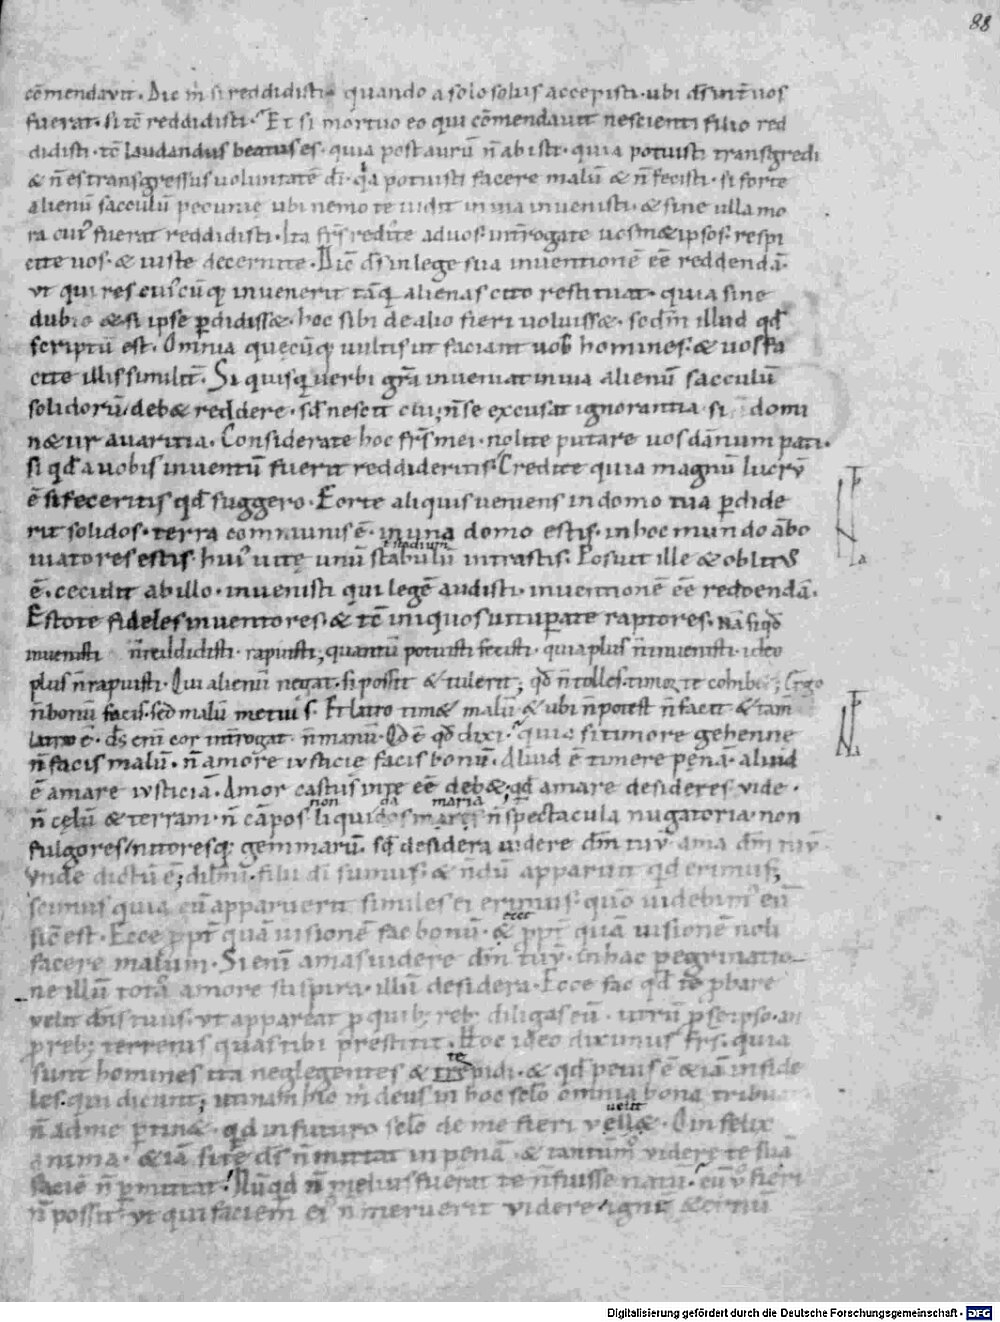 88
cōmendavit. Dic m̄ si reddidisti quando a solo solus accepisti. ubi d̄s int̄ vos
fuerat. si tc̄ reddidisti. Et si mortuo eo qui cōmendavit nescienti filio red
didisti. tc̄ laudandus beatus es. quia post aurū n̄ abisti. quia potuisti transgredi
& n̄ es transgressus voluntatē dī. q̇a potuisti facere malū & n̄ fecisti. si forte
alienū sacculū pecunię ubi nemo te vidit in via invenisti. & sine ulla mo
ra cui' fuerat reddidisti. Ita fr̄s redite ad vos. int̄rogate vosm& ipsos. respi
cite vos. & iuste decernite. Dic̄ d̄s in lege sua inventionē eē reddendā.
ut qui res cui'cūq; invenerit tāq̄ alienas cito restituat. quia sine
dubio & si ipse ꝑdidiss&. hoc sibi de alio fieri voluiss&. secdm̄ illud qd̄
scriptū est. Omnia quęcūq; vultis ut faciant vob̄ homines. & vos fa
cite illis similit̄. Si quisq; verbi gr̄a inveniat in via alienū sacculū
solidorū, deb& reddere. sed nescit cui; n̄ se excus& ignorantia. si domi
n&ur avaritia. Considerate hoc fr̄s mei. nolite putare vos dānum pati.
si qd̄ a vobis inventū fuerit reddideritis. Credite quia magnū lucrū
ē si feceritis qd̄ suggero. Forte aliquis veniens in domo tua ꝑdide
rit solidos. terra communis ē. in una domo estis. in hoc mundo ābo
stadium
viatores estis. hui' vitę unū stabulū intrastis. Posuit ille & oblitus
ē. cecidit ab illo. invenisti qui legē audisti. inventionē eē reddendā.
Estote fideles inventores. & tc̄ iniquos vituꝑate raptores. Nā si qd̄
invenisti n̄ reddidisti. rapuisti; quantū potuisti fecisti. quia plus n̄ invenisti. ideo
plus n̄ rapuisti. Qui alienū negat. si possit & tulerit; qd̄ n̄ tolles. timor te cohib&; Ergo
n̄ bonū facis. sed malū metuis. Et latro tim& malū & ubi n̄ potest n̄ facit & tam̄
latro ē. d̄s enī cor int̄rogat n̄ manū. Qd̄ ē qd̄ dixi. quia si timore gehenne
n̄ facis malū. n̄ amore iusticie facis bonū. Aliud ē timere penā. aliud
ē amare iusticiā. Amor castus in te eē deb&; qd̄ amare desideres vide.
non da maria
n̄ cęlū & terram. n̄ cāpos liquidos maris n̄ spectacula nugatoria. non
fulgores, nitoresq; gemmarū. sed desidera videre dm̄ tuū. ama dm̄ tuū
Unde dictū ē; dilc̄mi. filii dī sumus. & n̄dū apparuit qd̄ erimus;
scimus quia cū apparuerit similes ei erimus. quō videbim' eū
ecce
sic̄ est. Ecce ꝓpt̄ quā visionē fac bonū. & ꝓpt̄ quā visionē noli
facere malum. Si enī amas videre dm̄ tuū. in hac ꝑegrinatio
ne illū totā amore suspira. illū desidera. Ecce fac qd̄ te ꝓbare
velit dn̄s tuus. ut appareat ꝓ quib; reb; diligas eū. utrū ꝓ se ipso. an
ꝓ reb; terrenis quas tibi prestitit. Hoc ideo dicimus fr̄s. quia
te
sunt homines ita neglegentes & trepidi. & qd̄ peius ē & iā infide
les. qui dicunt; utinam hic m̄ deus in hoc sc̄lo omnia bona tribu
velit
n̄ ad me ꝑtin&. qd̄ in futuro sc̄lo de me fieri vell&. O infelix
anima. & iā si te d̄s n̄ mittat in penā. & tantūm̊ videre te suā
faciē n̄ ꝑmittat. Nūqd̄ n̄ melius fuerat te n̄ fuisse natū. cū fieri
n̄ possit ut qui faciem ei' n̄ meruerit videre ignē
Digitalisierung gefördert durch die Deutsche Forschungsgemeinschaft - DFG